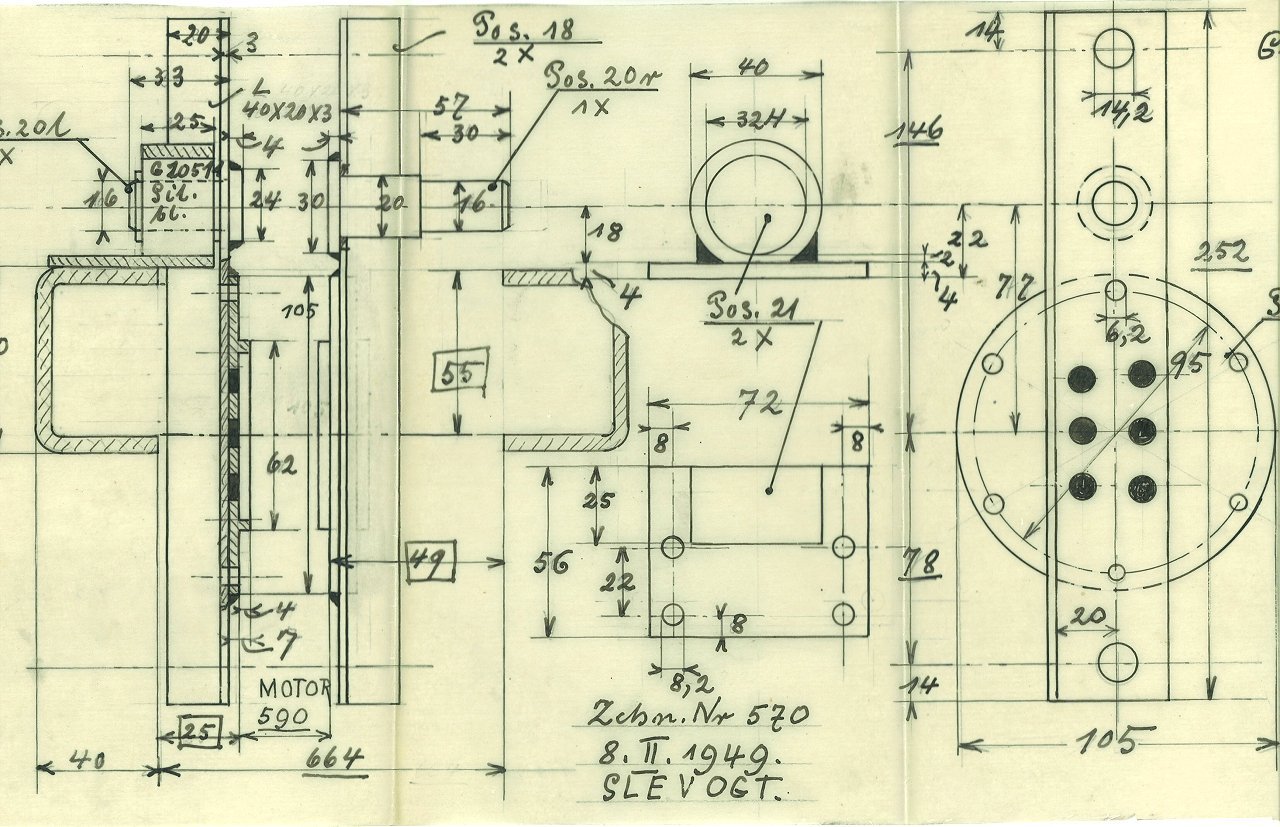 20
3
33
L
40X20X3
25
4
Pos. 18
2 X
Pos. 20r
1X
57
30
40
32H
14
14,2
146
16
24
30
20
16
18
4
22
2
4
77
252
105
55
Pos. 21
2 X
6,2
95
72
8
8
62
25
56
22
49
8
8,2
78
20
14
4
7
MOTOR
590
25
40
664
105
Zchn. Nr 570
8. II. 1949.
SLEVOGT.